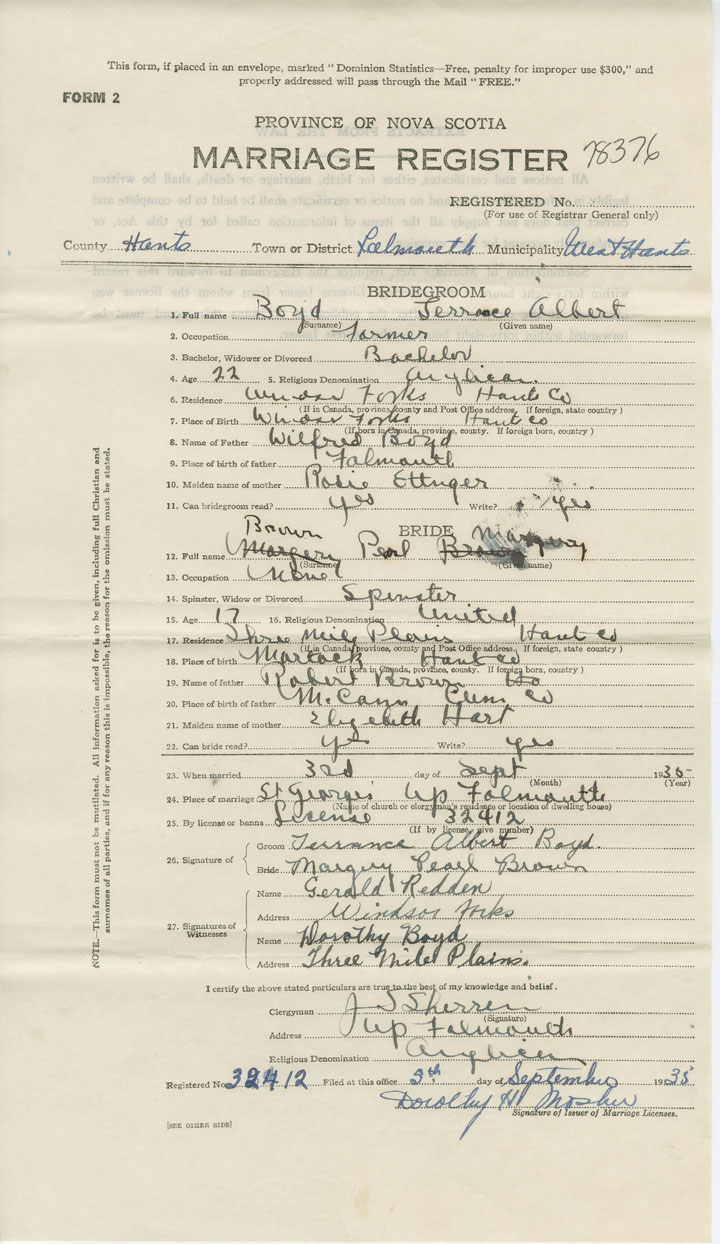 This form, if placed in an envelope, marked "Dominion Statistics—Free, penalty for improper use $300," and
properly addressed will pass through the Mail "FREE."
FORM 2
PROVINCE OF NOVA SCOTIA
MARRIAGE REGISTER 78376
REGISTERED No.
(For use of Registrar General only)
County Hants Town or District Falmouth Municipality West Hants
BRIDEGROOM
1. Full name Boyd Terrance Albert
(Surname) (Given name)
2. Occupation Farmer
3. Bachelor, Widower or Divorced Bachelor
4. Age 22 5. Religious Denomination Anglican
6. Residence Windsor Forks Hants Co
(If in Canada, province, county and Post Office address. If foreign, state country)
7. Place of Birth Windsor Forks Hants Co
(If born in Canada, province, county. If foreign born, country)
8. Name of Father Wilfred Boyd
9. Place of birth of father Falmouth
10. Maiden name of mother Rosie Ettinger
11. Can bridegroom read? yes Write? yes
BRIDE
Brown Marguy
12. Full name Margery Pearl Brown
(Surname) (Given name)
13. Occupation None
14. Spinster, Widow or Divorced Spinster
15. Age 17 16. Religious Denomination United
17. Residence Three Mile Plains Hants Co
(If in Canada, province, county and Post Office address. If foreign, state country)
18. Place of birth Martock Hants Co
(If born in Canada, province, county. If foreign born, country)
19. Name of father Robert Brown
20. Place of birth of father McCann Cum Co
21. Maiden name of mother Elizebeth Hart
22. Can bride read? yes Write? yes
23. When married 3rd day of Sept 1935
(Month) (Year)
24. Place of marriage St Georges Up Falmouth
(Name of church or clergyman's residence or location of dwelling house)
25. By license or banns License 32412
(If by license, give number)
26. Signature of
Groom Terrance Albert Boyd.
Bride Marguy Pearl Brown
27. Signatures of Witnesses
Name Gerald Redden
Address Windsor Forks
Name Dorothy Boyd
Address Three Mile Plains.
I certify the above stated particulars are true to the best of my knowledge and belief.
Clergyman J S Sherren
(Signature)
Address Up Falmouth
Religious Denomination Anglican
Registered No. 32412 Filed at this office 5th day of September 1935
Dorothy H. Mosher
Signature of Issuer of Marriage Licenses.
[SEE OTHER SIDE]
NOTE.—This form must not be mutilated. All information asked for is to be given, including full Christian and
surnames of all parties, and if for any reason this is impossible, the reason for the omission must be stated.